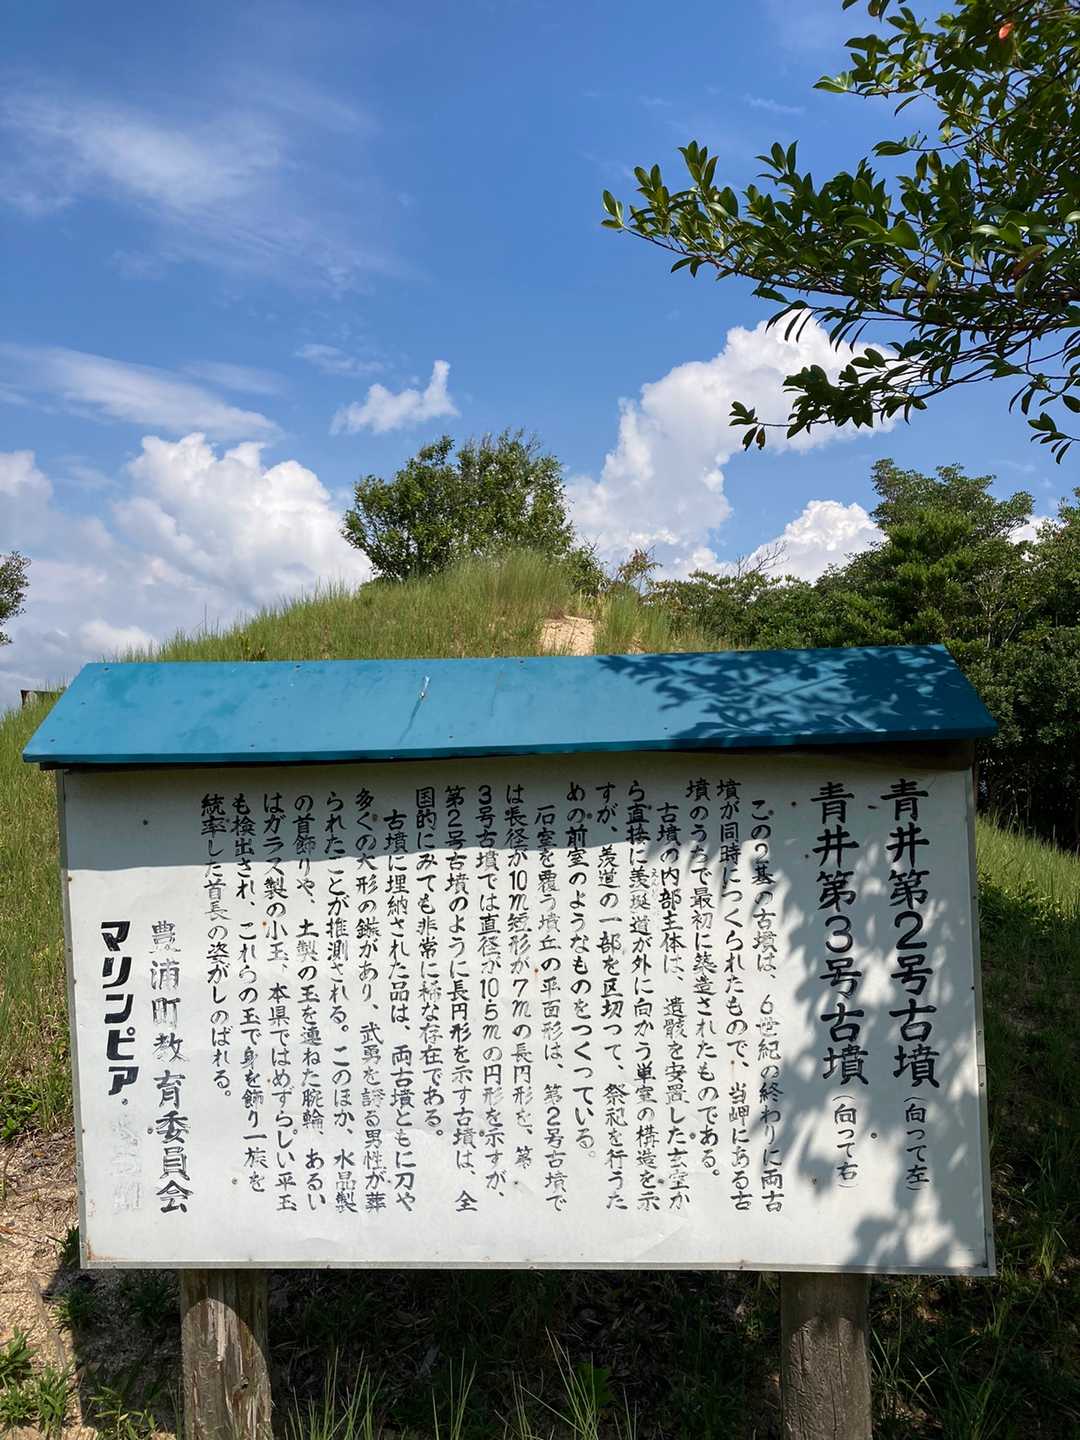 青井第2号古墳（向って左）
青井第3号古墳（向って右）
この2基の古墳は、6世紀の終わりに両古
墳が同時につくられたもので、当岬にある古
墳のうちで最初に築造されたものである。
古墳の内部主体は、遺骸を安置した玄室か
ら直接に羨道が外に向かう単室の構造を示
すが、羨道の一部を区切って、祭祀を行うた
めの前室のようなものをつくっている。
石室を覆う墳丘の平面形は、第2号古墳で
は長径が10m短形が7mの長円形を、第
3号古墳では直径が10.5mの円形を示すが、
第2号古墳のように長円形を示す古墳は、全
国的にみても非常に稀な存在である。
古墳に埋納された品は、両古墳ともに刀や
多くの大形の鏃があり、武勇を誇る男性が葬
られたことが推測される。このほか、水晶製
の首飾りや、土製の玉を連ねた腕輪、あるい
はガラス製の小玉、本県ではめずらしい平玉
も検出され、これらの玉で身を飾り一族を
統率した首長の姿がしのばれる。
豊浦町教育委員会
マリンピア・